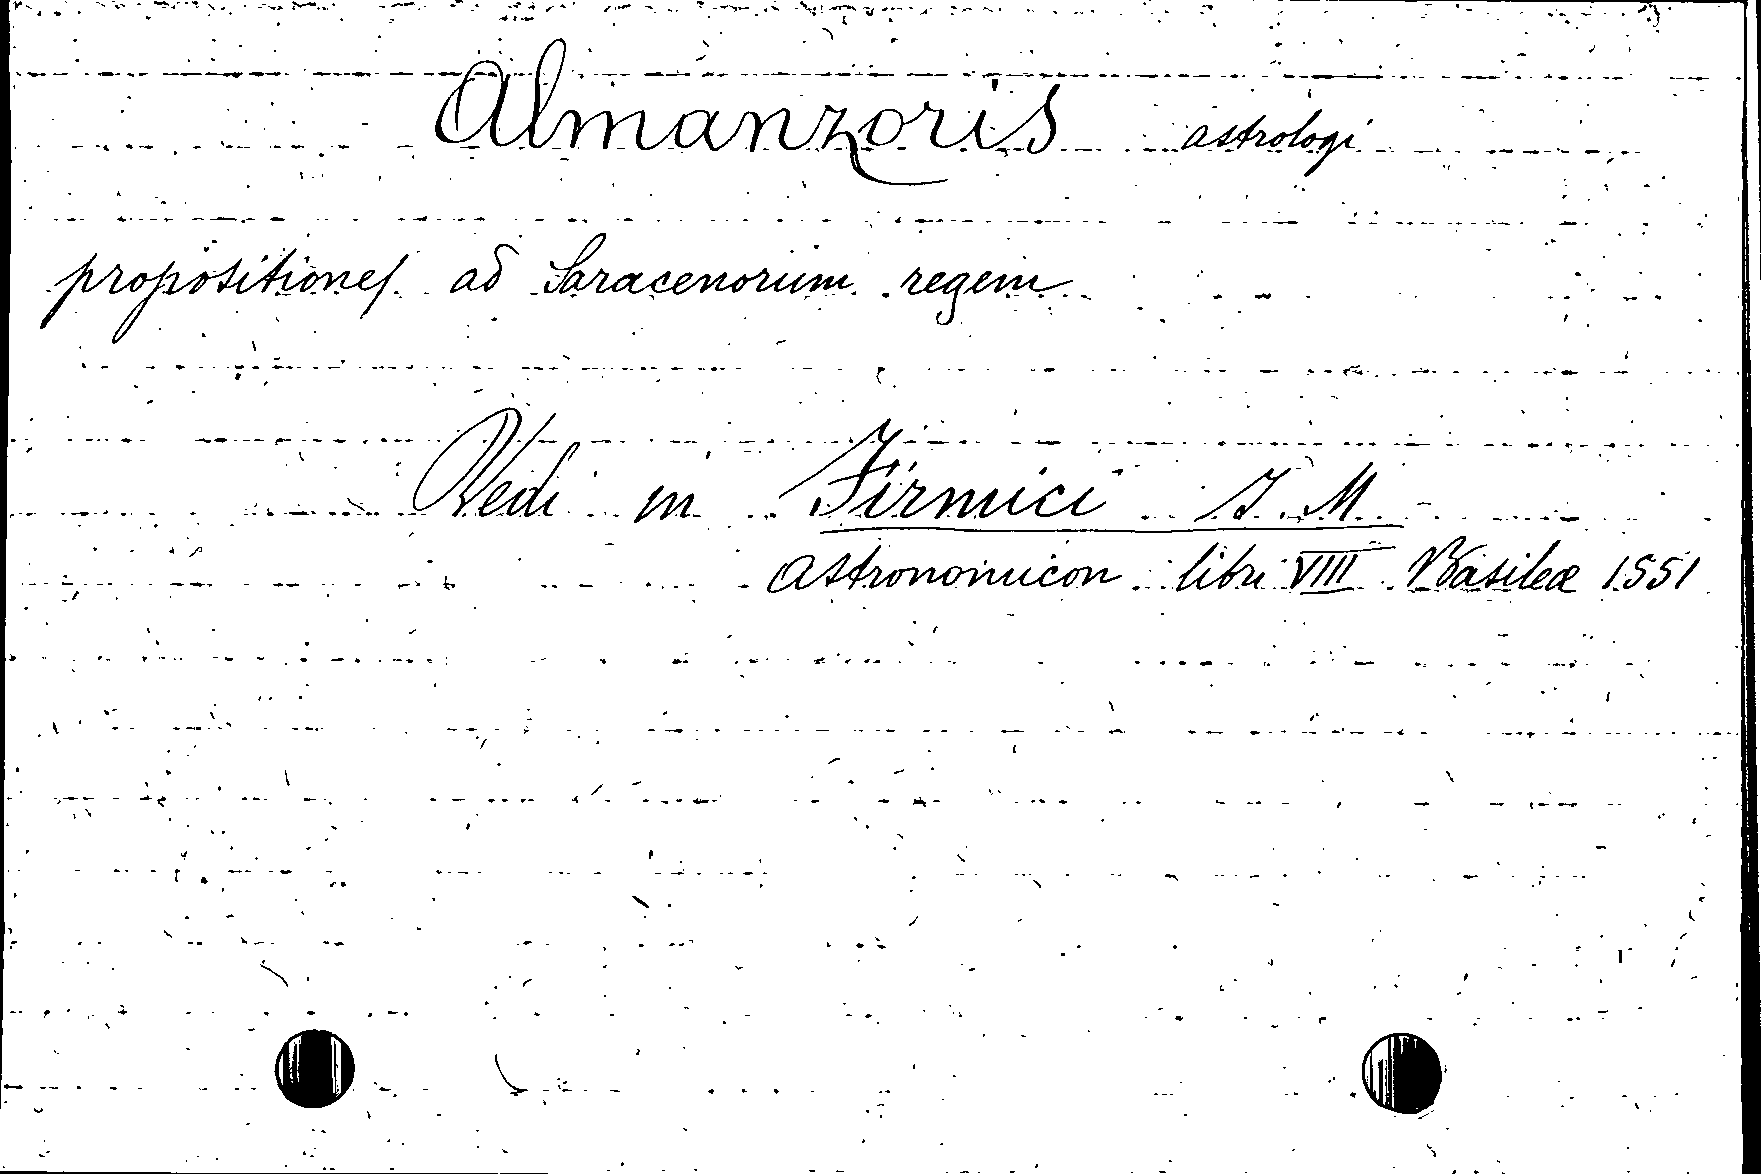 Almanzoris astrologi
propositiones ad Saracenorum regem
Vedi in Firmici I. M.
Astronomicon libri VIII Basileæ 1551